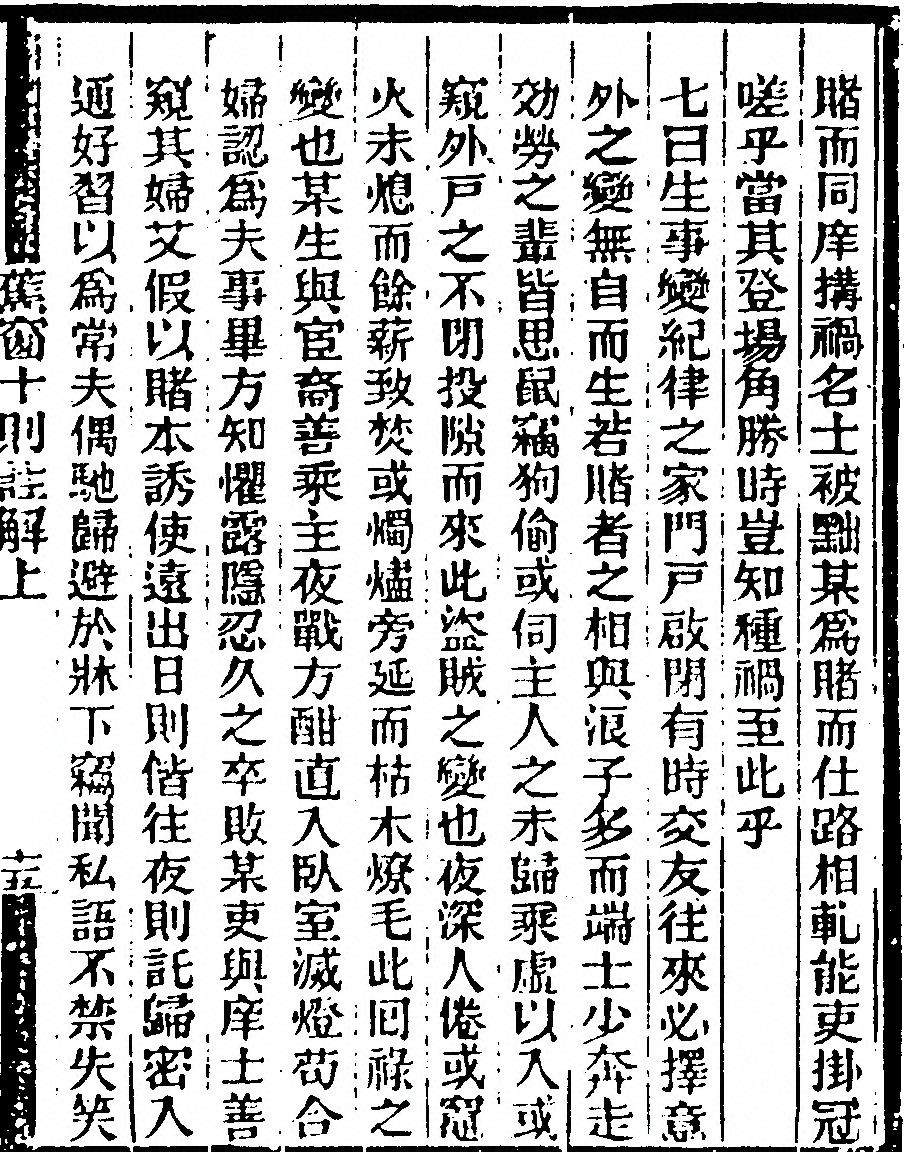 賭而同庠搆禍名士被黜某爲賭而仕路相軋能吏掛冠
嗟乎當其登場角勝時豈知種禍至此乎
七曰生事變紀律之家門戸啟閉有時交友往來必擇意
外之變無自而生若賭者之相與浪子多而端士少奔走
効勞之輩皆思鼠竊狗偷或伺主人之未歸乘虛以入或
窺外戸之不閉投隙而來此盜賊之變也夜深人倦或竈
火未熄而餘薪致焚或燭燼旁延而枯木燎毛此囘祿之
變也某生與宦裔善乘主夜戰方酣直入臥室滅燈茍合
婦認爲夫事畢方知懼露隱忍久之卒敗某吏與庠士善
窺其婦艾假以賭本誘使遠出日則偕往夜則託歸密入
通好習以爲常夫偶馳歸避於牀下竊聞私語不禁失笑
蕉窗十則註解上
十五